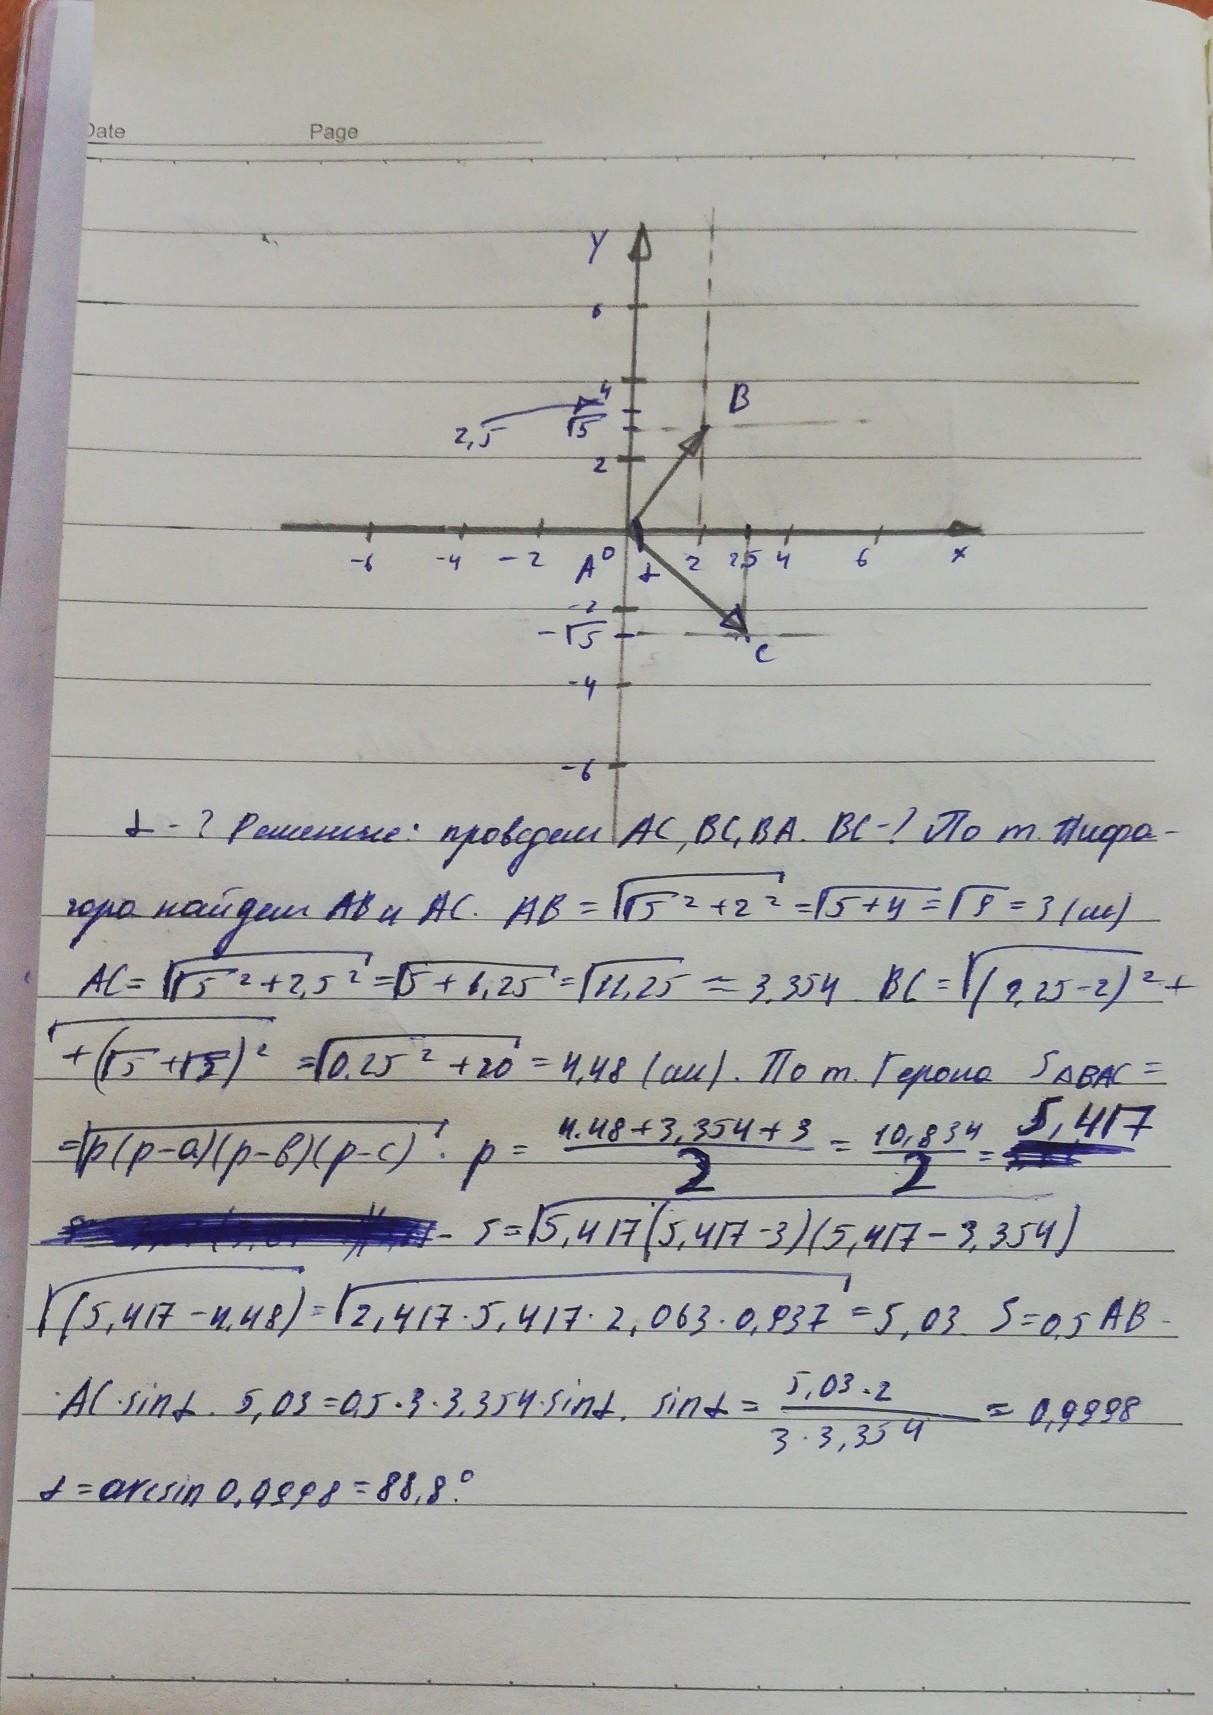 Date Page
Y
6
4
B
2,5 √5
2
-6 -4 -2 A 0 α 2 2,5 4 6 x
-2
-√5
C
-4
-6
α - ? Решение: проведем AC, BC, BA. BC - ? По т. Пифа-
гора найдем AB и AC. AB = √(√5² + 2²) = √(5+4) = √9 = 3 (см)
AC = √(√5² + 2,5²) = √(5 + 6,25) = √11,25 ≈ 3,354 BC = √((2,25-2)² +
+ (√5 + √5)²) = √(0,25² + 20) = 4,48 (см). По т. Герона S△BAC =
= √(p(p-a)(p-b)(p-c)). p = (4.48+3,354+3)/2 = 10,834/2 = 5,417
S = √(5,417(5,417-3)(5,417-3,354)
√(5,417-4,48) = √(2,417·5,417·2,063·0,937) = 5,03. S = 0,5 AB ·
· AC · sinα. 5,03 = 0,5·3·3,354·sinα. sinα = (5,03·2)/(3·3,354) = 0,9998
α = arcsin 0,9998 = 88,8°.